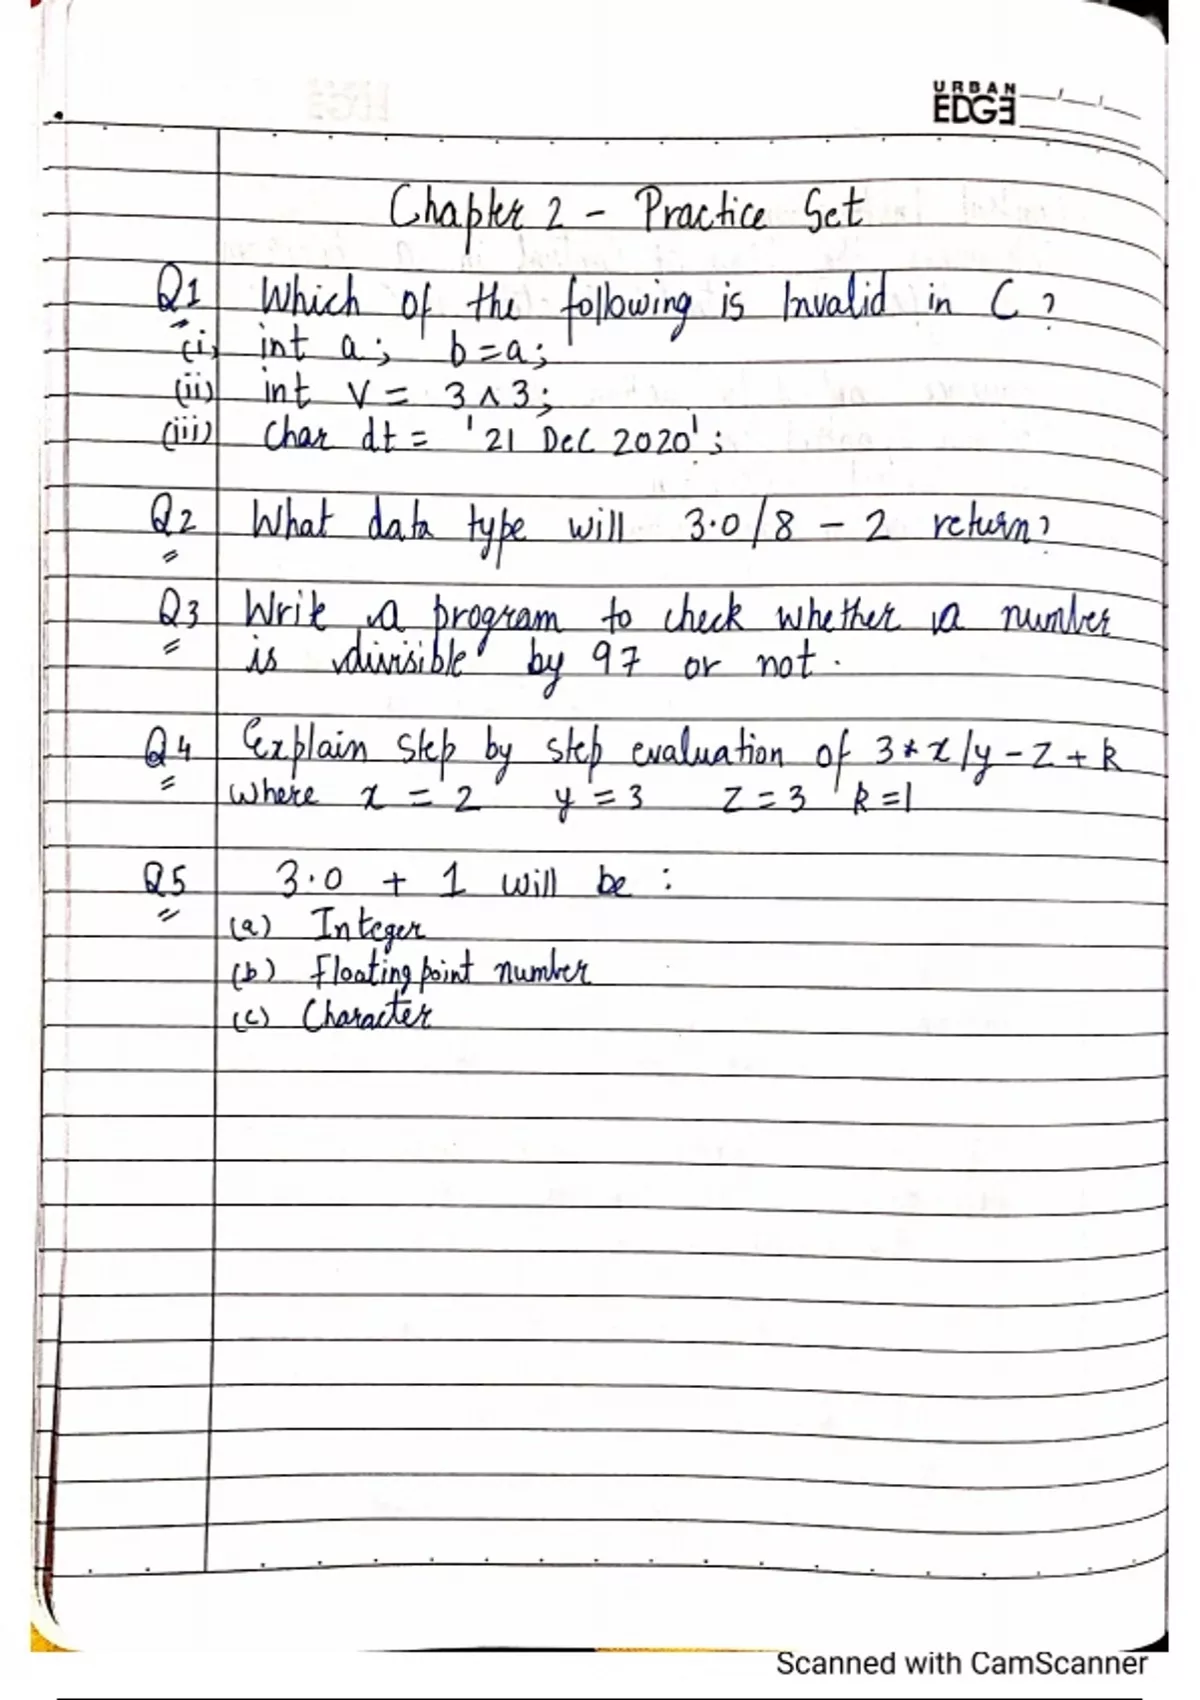 URBAN
EDGE
Chapter 2 - Practice Set
Q1 Which of the following is Invalid in C?
(i) int a; b=a;
(ii) int V = 3^3;
(iii) Char dt = '21 Dec 2020';
Q2 What data type will 3.0/8 - 2 return?
Q3 Write a program to check whether a number
is divisible by 97 or not.
Q4 Explain step by step evaluation of 3*x/y-z+k
Where x = 2 y = 3 z = 3 k = 1
Q5 3.0 + 1 will be :
(a) Integer
(b) Floating point number
(c) Character
Scanned with CamScanner